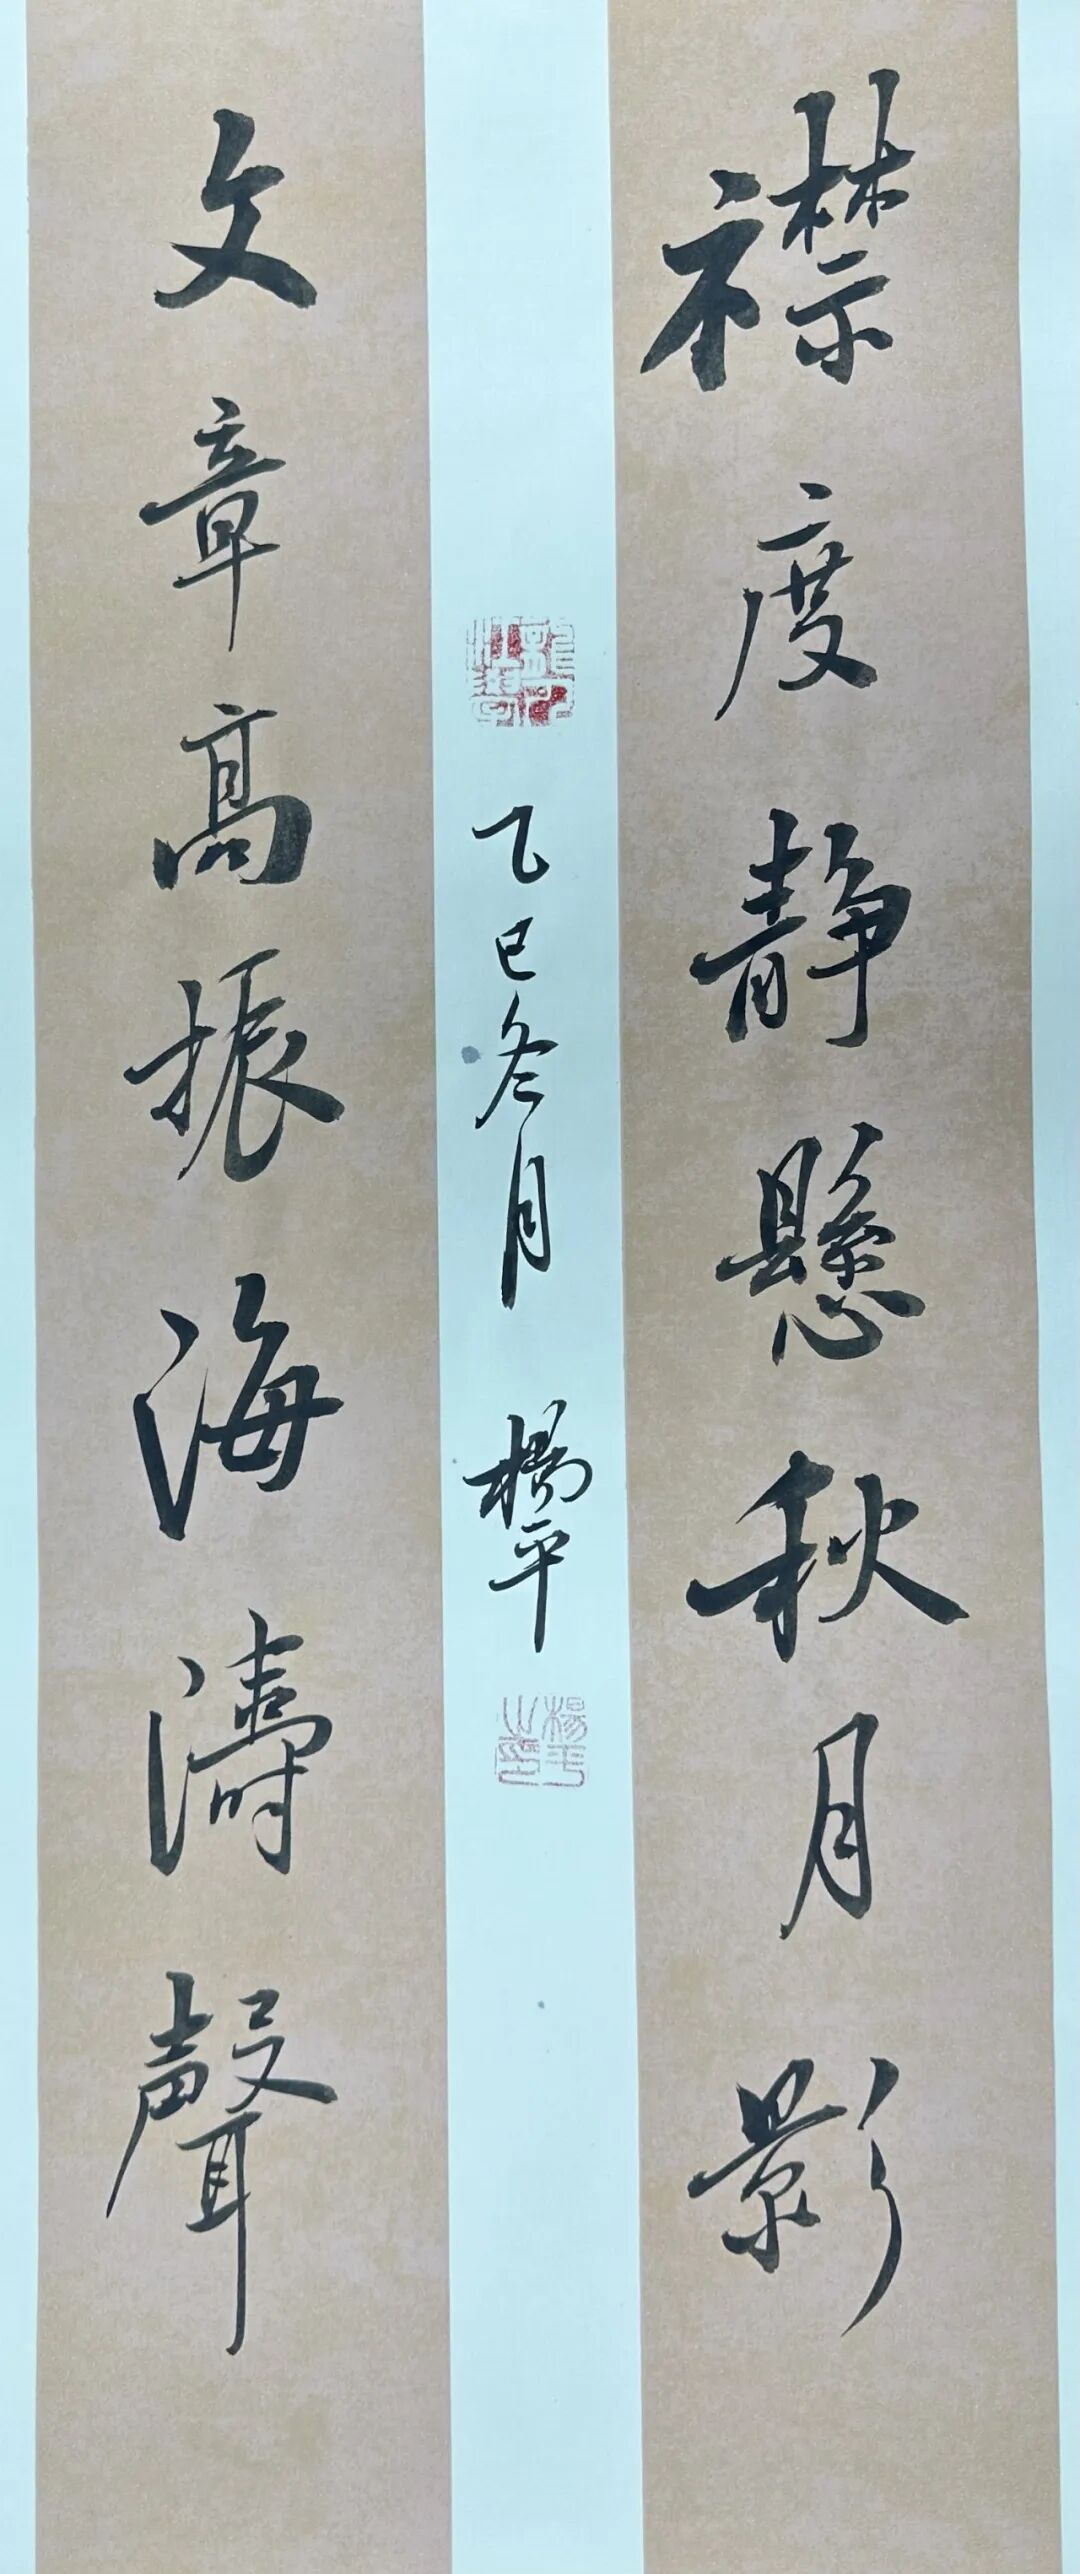 襟度静懸秋月影
文章高振海濤聲
乙巳冬月 楊平
楊平之印